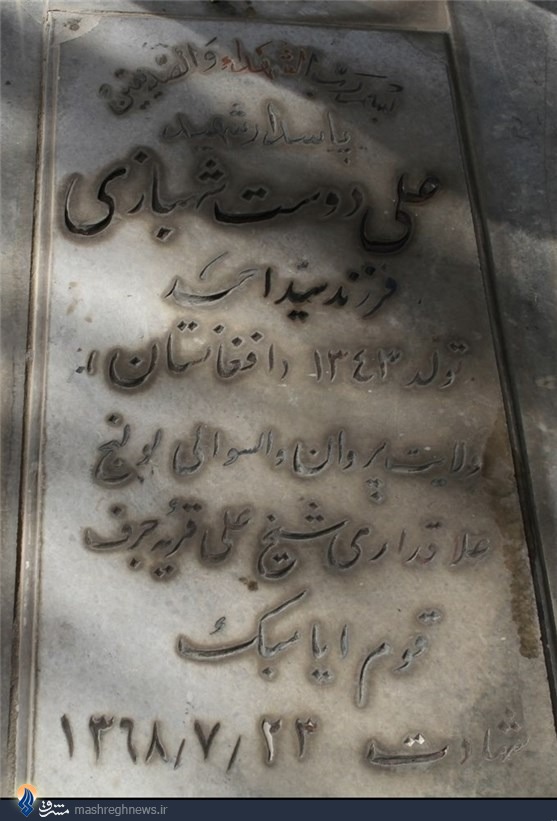 بسم رب الشهداء والصدیقین
پاسدار شهید
علی دوست شهبازی
فرزند سید احمد
تولد ۱۳۴۳ (افغانستان)
ولایت پروان والسوالی لولنج
علاقداری شیخ علی قریه جرف
قوم ایاسبک
شهادت ۱۳۶۸/۷/۲۳
مشرق mashreghnews.ir